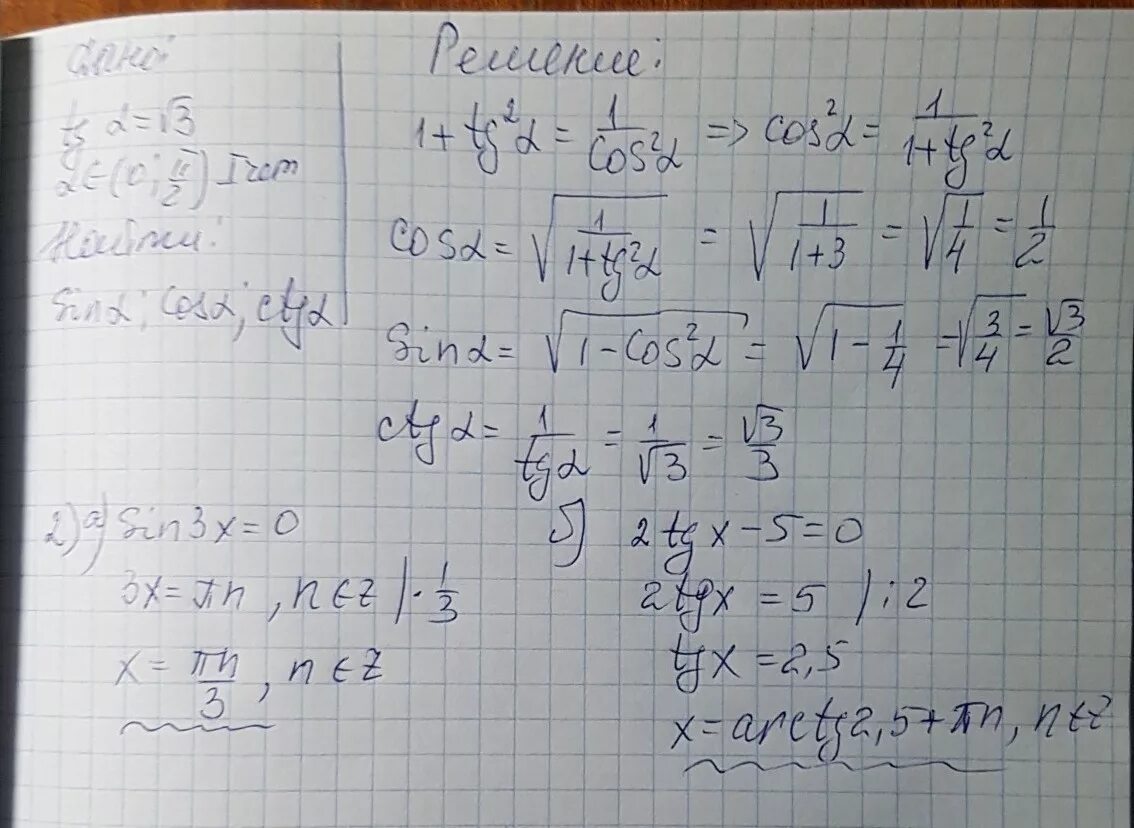 Дано:
tg α = √3
α ∈ (0; π/2) I чет
Найти:
Sin α; Cos α; ctg α
Решение:
1 + tg²α = 1/Cos²α => Cos²α = 1/(1+tg²α)
Cos α = √(1/(1+tg²α)) = √(1/(1+3)) = √(1/4) = 1/2
Sin α = √(1 - Cos²α) = √(1 - 1/4) = √(3/4) = √3/2
ctg α = 1/tg α = 1/√3 = √3/3
2) а) Sin 3x = 0
3x = πn, n ∈ Z | · 1/3
x = πn/3, n ∈ Z
б) 2 tg x - 5 = 0
2 tg x = 5 | : 2
tg x = 2,5
x = arctg 2,5 + πn, n ∈ Z